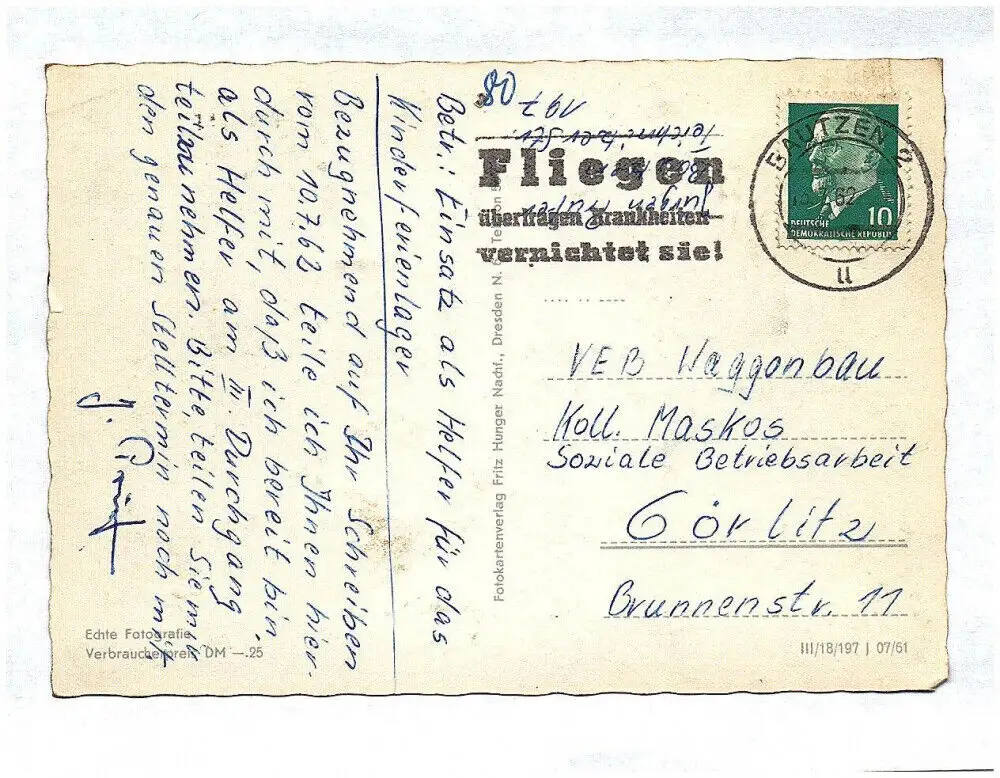 80
Betr.: Einsatz als Helfer für das
Kinderferienlager
Bezugnehmend auf Ihr Schreiben
vom 10.7.62 teile ich Ihnen hier-
durch mit, daß ich bereit bin,
als Helfer am III. Durchgang
teilzunehmen. Bitte teilen Sie mir
den genauen Stelltermin noch mit.
J.
Jürgen
Teichnitzer Str.
197
Fliegen
übertragen Krankheiten
vernichtet sie!
BAUTZEN 2
62
u
10
DEUTSCHE
DEMOKRATISCHE REPUBLIK
VEB Waggonbau
Koll. Maskos
Soziale Betriebsarbeit
Görlitz
Brunnenstr. 11
Fotokartenverlag Fritz Hunger Nachf., Dresden N. 6
Echte Fotografie
Verbraucherpreis DM —.25
III/18/197 J 07/61